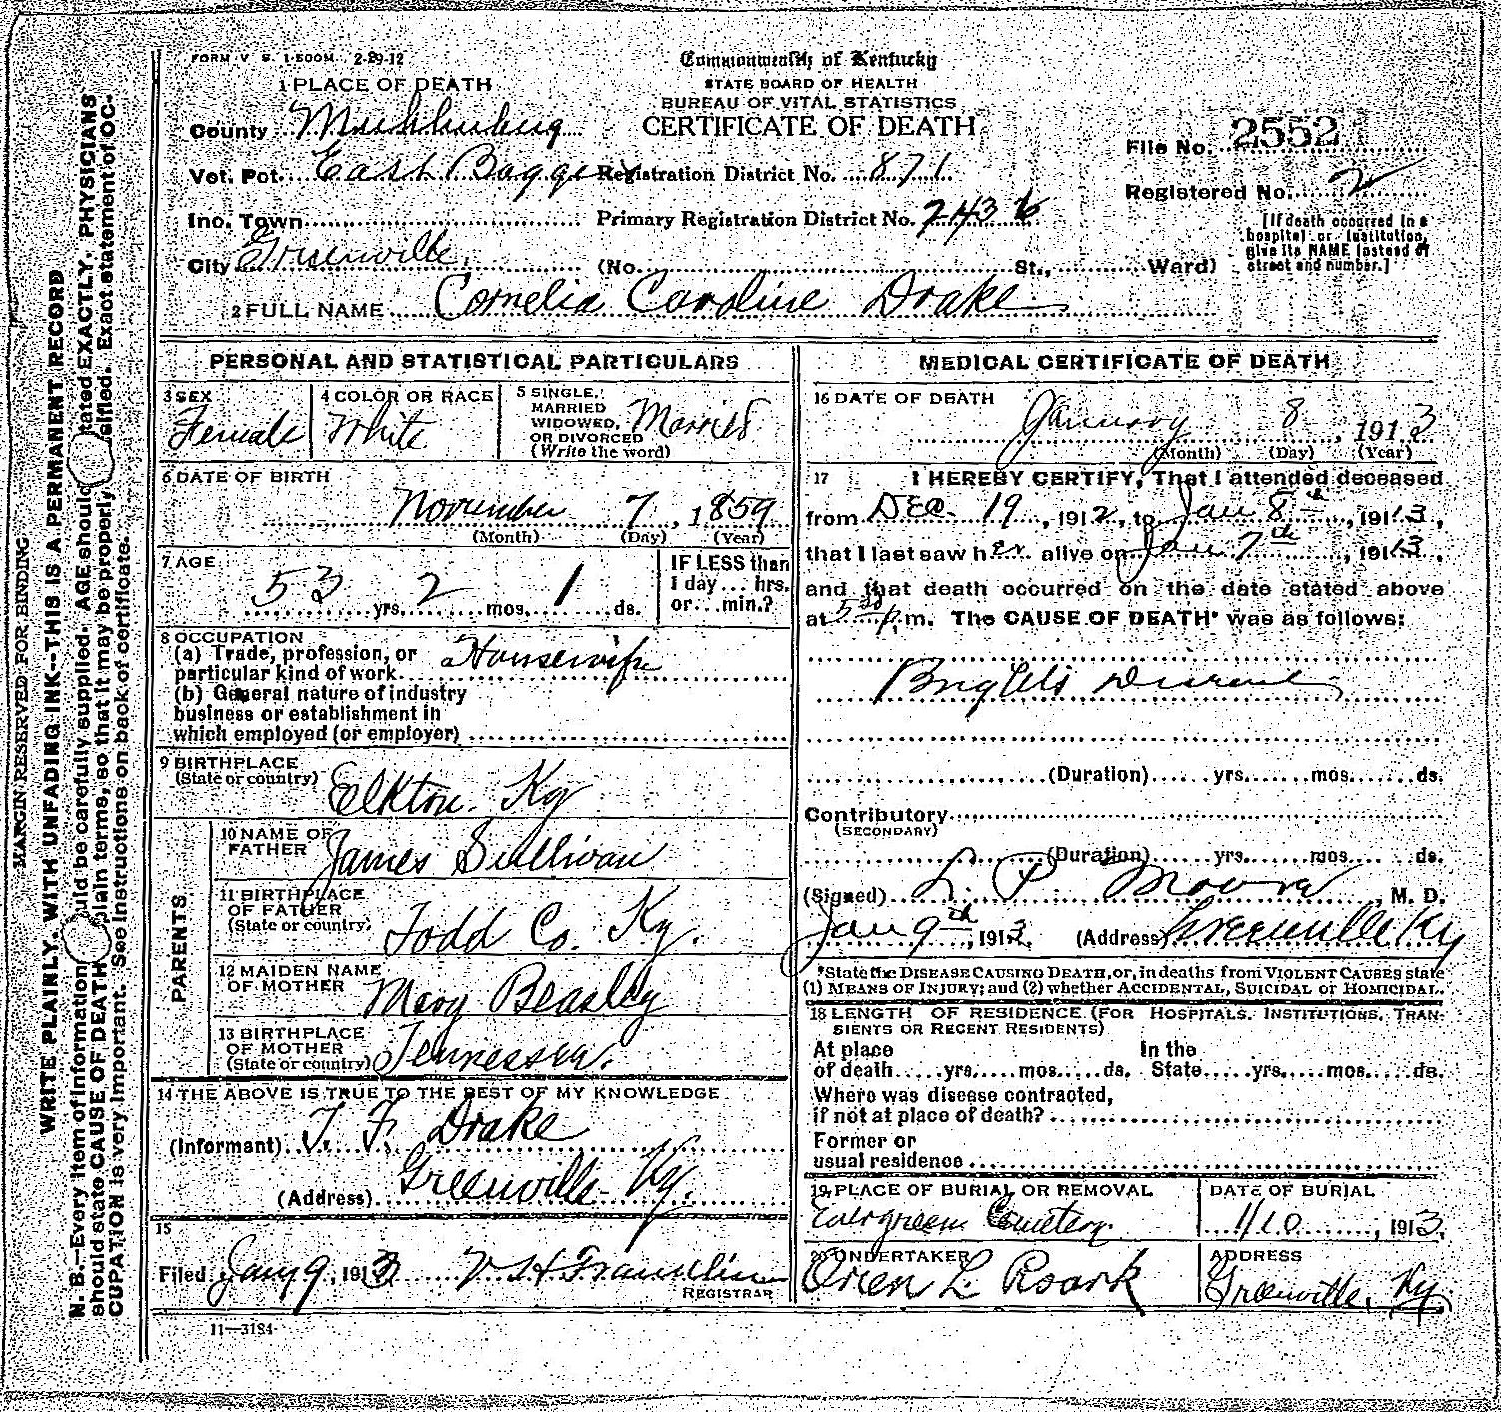 FORM V. S. 1-500M. 2-29-12
Commonwealth of Kentucky
STATE BOARD OF HEALTH
BUREAU OF VITAL STATISTICS
CERTIFICATE OF DEATH
1 PLACE OF DEATH
County Muhlenberg
Vot. Pct. East Bagge Registration District No. 871
Inc. Town Primary Registration District No. 2436
City Greenville (No. St., Ward)
File No. 2552
Registered No. 2
[If death occurred in a
hospital or institution,
give its NAME instead of
street and number.]
2 FULL NAME Cornelia Caroline Drake
PERSONAL AND STATISTICAL PARTICULARS
3 SEX
Female
4 COLOR OR RACE
White
5 SINGLE,
MARRIED
WIDOWED,
OR DIVORCED
(Write the word)
Married
6 DATE OF BIRTH
November 7, 1859
(Month) (Day) (Year)
7 AGE
53 yrs. 2 mos. 1 ds.
IF LESS than
1 day... hrs.
or...min.?
8 OCCUPATION
(a) Trade, profession, or
particular kind of work Housewife
(b) General nature of industry
business or establishment in
which employed (or employer)
9 BIRTHPLACE
(State or country) Elkton. Ky
PARENTS
10 NAME OF
FATHER James Sullivan
11 BIRTHPLACE
OF FATHER
(State or country) Todd Co. Ky.
12 MAIDEN NAME
OF MOTHER Mary Beasley
13 BIRTHPLACE
OF MOTHER
(State or country) Tennessee.
14 THE ABOVE IS TRUE TO THE BEST OF MY KNOWLEDGE
(Informant) T. F. Drake
(Address) Greenville Ky.
15
Filed Jany 9, 1913 Franklin
REGISTRAR
11—3184
MEDICAL CERTIFICATE OF DEATH
16 DATE OF DEATH
January 8, 1913
(Month) (Day) (Year)
17 I HEREBY CERTIFY, That I attended deceased
from Dec. 19, 1912, to Jan 8th, 1913,
that I last saw her alive on Jan 7th, 1913,
and that death occurred on the date stated above
at 5 p.m. The CAUSE OF DEATH* was as follows:
Brights Disease
(Duration) yrs. mos. ds.
Contributory
(SECONDARY)
(Duration) yrs. mos. ds.
(Signed) L. P. Moore, M. D.
Jan 9th, 1913. (Address) Greenville Ky
*State the DISEASE CAUSING DEATH, or, in deaths from VIOLENT CAUSES state
(1) MEANS OF INJURY; and (2) whether ACCIDENTAL, SUICIDAL or HOMICIDAL.
18 LENGTH OF RESIDENCE (FOR HOSPITALS, INSTITUTIONS, TRAN-
SIENTS OR RECENT RESIDENTS)
At place In the
of death yrs. mos. ds. State yrs. mos. ds.
Where was disease contracted,
if not at place of death?
Former or
usual residence
19 PLACE OF BURIAL OR REMOVAL
Evergreen Cemetery
DATE OF BURIAL
1/10, 1913.
20 UNDERTAKER
Orien L. Roark
ADDRESS
Greenville, Ky.
MARGIN RESERVED FOR BINDING
WRITE PLAINLY, WITH UNFADING INK--THIS IS A PERMANENT RECORD
N. B.--Every item of information should be carefully supplied. AGE should stated EXACTLY. PHYSICIANS
should state CAUSE OF DEATH plain terms, so that it may be properly sified. Exact statement of OC-
CUPATION is very important. See instructions on back of certificate.